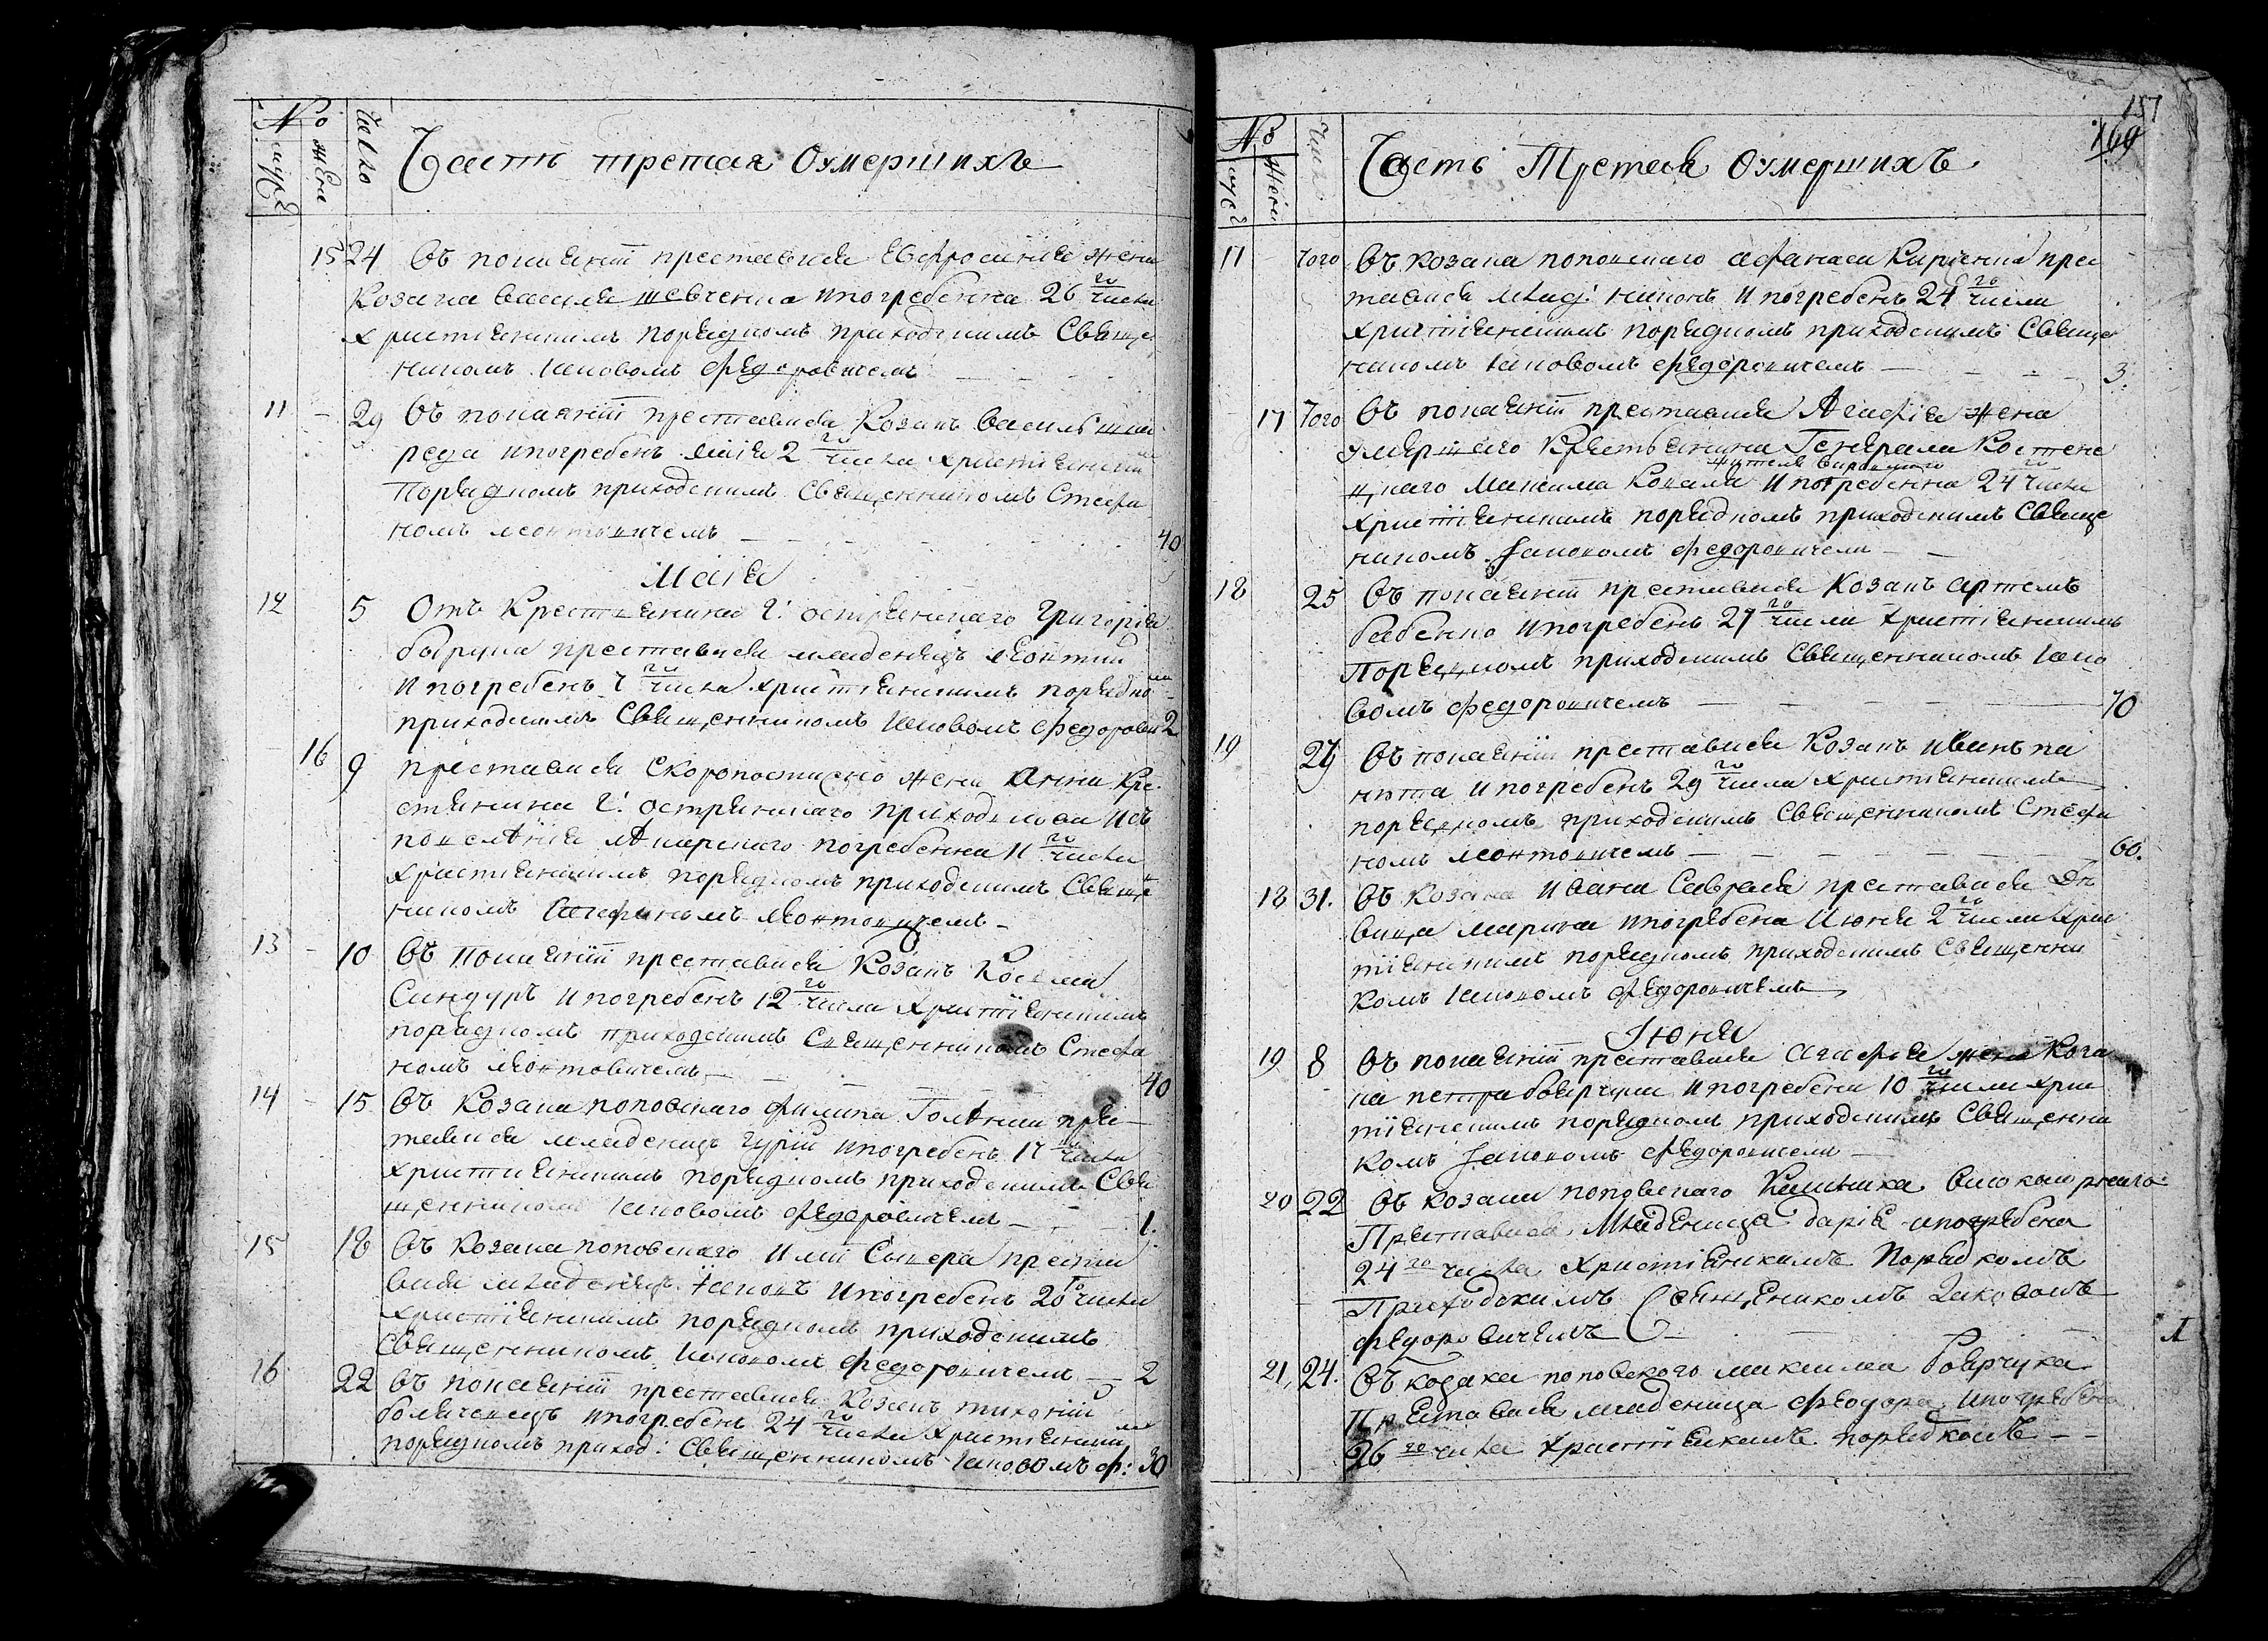 №
муж
жен
число
Часть третая Оумершихъ
15 24 Въ покаяніи преставися Евфросиніа жена
козака Василя Шевченка и погребенна 26 го числа
христіянскимъ порядкомъ приходскимъ Свяще
никомъ Іаковомъ Федоровичемъ
11 - 29 Въ покаяніи преставися козакъ Василь
реда и погребенъ Маія 2 го числа христіянски
порядкомъ приходскимъ Священникомъ Стефа
номъ Леонтовичемъ 40
Маія
12 5 Отъ крестянина Г: остранскаго Григорія
преставися младенецъ Леонтий
и погребенъ 7 го числа христіянскимъ порядко м
приходскимъ Священникомъ Іаковомъ Федорови 2
16 9 преставися скоропостижно жена Анна кре
стянина Г: остранскаго приходская изъ
погребенна 11 го числа
христіянскимъ порядкомъ приходскимъ Свяще
никомъ Стефаномъ Леонтовичемъ -
13 - 10 Въ покаяніи преставися козакъ Косма
Синдуръ и погребенъ 12 го числа христіянскимъ
порядкомъ приходскимъ Священникомъ Стефа
номъ Леонтовичемъ 40
14 - 15 Въ козака поповскаго Филипа пре
тавися младенецъ Гурій и погребенъ 17 го числа
християнскимъ порядкомъ приходскимъ Свя
щенникомъ Іаковомъ Федоровичемъ - 1.
15 18 Въ козака поповскаго Иліи преста
вися младенецъ Іаковъ и погребенъ 20 го числа
христіянскимъ порядкомъ приходскимъ
Священникомъ Іаковомъ Федоровичемъ - 2
16 22 Въ покаяніи преставися козакъ тихоній
и погребенъ 24 го числа христіянски м
порядкомъ приход: Священникомъ Іаковомъ Ф: 30
157
169
№
муж
жен
число
Часть Третея Оумершихъ
17 - того Въ козака поповскаго Афанасія Кириенка пре
тавися млад: никонъ и погребенъ 24 го числа
христіянскимъ порядкомъ приходскимъ Свяще
никомъ Іаковомъ Федоровичемъ - 3.
17 того Въ покаяніи преставися Агафія жена
умершаго крестьянина Генерала Костене
цкаго Максима Коваля и погребенна 24 го числа
христіянскимъ порядкомъ приходскимъ Свяще
никомъ Іаковомъ Федоровичем -
18 25 Въ покаяніи преставися козакъ артемъ
бабенко и погребенъ 27 го числа христіянскимъ
порядкомъ приходскимъ Священникомъ Іако
вомъ Федоровичемъ 70
19 27 Въ покаяніи преставися козакъ иванъ па
и погребенъ 29 го числа христіянскимъ
порядкомъ приходскимъ Священникомъ Стефа
номъ Леонтовичемъ 60.
18 31. Въ козака Ивана преставися Дѣ
вица Марина и погребена Июня 2 го числа хрис
тіянскимъ порядкомъ приходскимъ Священни
комъ Іаковомъ Федоровичемъ
Іюня
19 8 Въ покаяніи преставися Агафія жена коза
ка петра боярчука и погребена 10 го числа хрис
тіянскимъ порядкомъ приходскимъ Священни
комъ Іаковомъ Федоровичем -
20 22 Въ козака поповскаго
Преставися Младеница дарія и погребена
24 го числа христіянскимъ Порядкомъ
Приходскимъ Священикомъ Іаковомъ
Федоровичемъ -
21. 24. Въ козака поповского максима Боярчука
Преставися младеница Феодора и погребена
26 го числа христіянскимъ порядкомъ - -